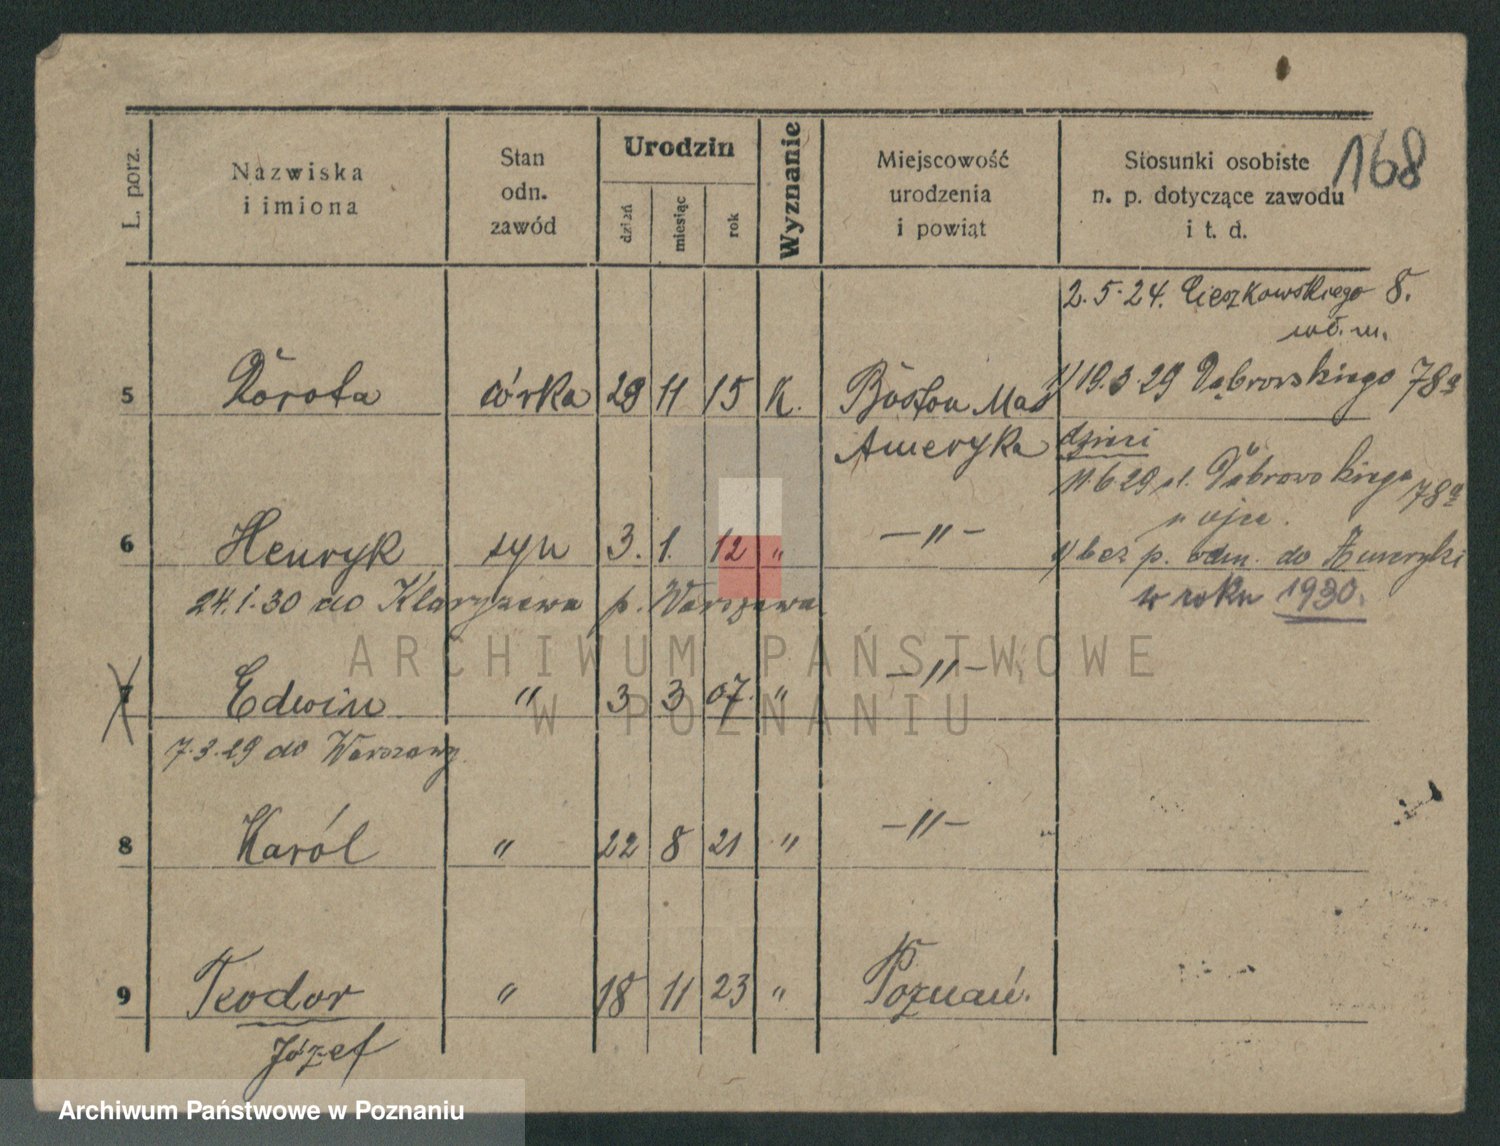 168
L. porz.
Nazwiska
i imiona
Stan
odn.
zawód
Urodzin
dzień
miesiąc
rok
Wyznanie
Miejscowość
urodzenia
i powiat
Stosunki osobiste
n. p. dotyczące zawodu
i t. d.
2.5.24. Cieszkowskiego 8.
wł. m.
5 Dorota córka 29 11 15 K. Boston Mas
Ameryka
1/ 19.3.29 Dąbrowskiego 78a
dzieci
11.6.29 ul. Dąbrowskiego 78a
u ojca.
6 Henryk syn 3. 1. 12 " —"—
1/ bez p. odm. do Ameryki
w roku 1930.
24.1.30 do p. Warszawa
7 Edwin " 3 3 07. " —"—
7.3.29 do Warszawy
8 Karól " 22 8 21 " —"—
9 Teodor " 18 11 23 " Poznań.
Józef
ARCHIWUM PAŃSTWOWE
W POZNANIU
Archiwum Państwowe w Poznaniu